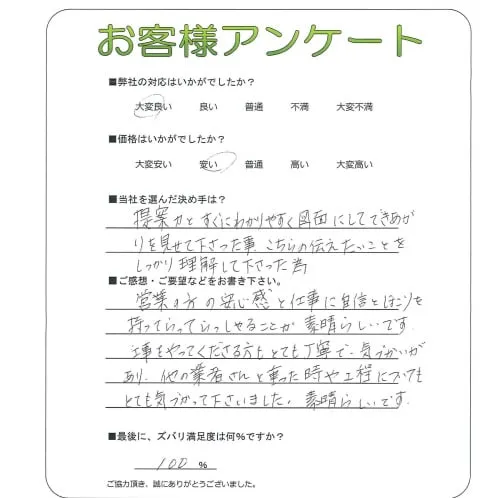 お客様アンケート
■弊社の対応はいかがでしたか?
大変良い 良い 普通 不満 大変不満
■価格はいかがでしたか?
大変安い 安い 普通 高い 大変高い
■当社を選んだ決め手は?
提案力とすぐにわかりやすく図面にしてできあが
りを見せて下さった事、こちらの伝えたいことを
しっかり理解して下さった為
■ご感想・ご要望などをお書き下さい。
営業の方の安心感と仕事に自信とほこりを
持ってらっしゃることが素晴らしいです。
工事をやってくださる方もとても丁寧で気づかいが
あり、他の業者さんと重った時や工程についても
とても気づかって下さいました。素晴らしいです。
■最後に、ズバリ満足度は何%ですか?
100 %
ご協力頂き、誠にありがとうございました。